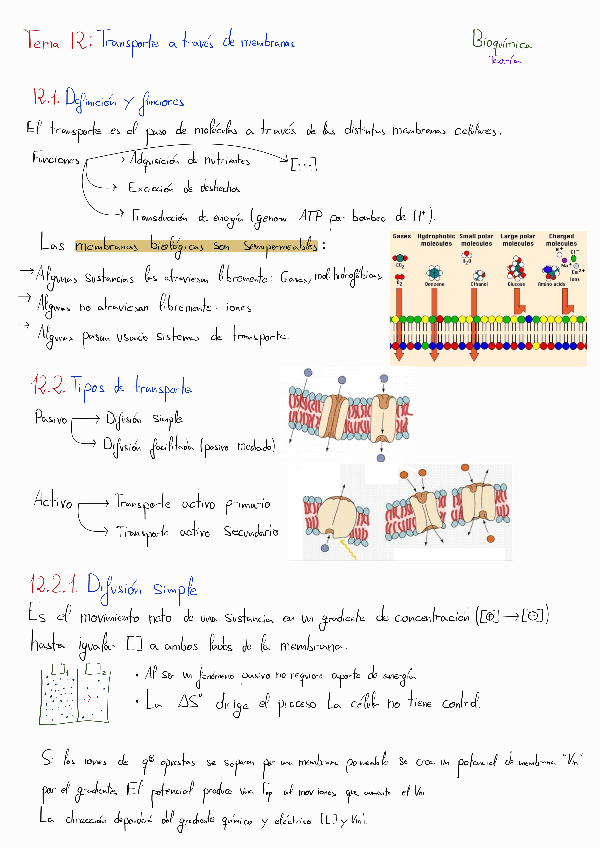 Tema 12: Transporte a través de membranas
Bioquímica
Teoría
12.1. Definición y funciones
El transporte es el paso de moléculas a través de las distintas membranas celulares.
Funciones → Adquisición de nutrientes → [...]
→ Excreción de deshechos
→ Transducción de energía (generar ATP por bombeo de H+).
Las membranas biológicas son semipermeables:
→ Algunas sustancias las atraviesan libremente: Gases, mol. hidrofóbicas
→ Algunas no atraviesan libremente: iones
→ Algunas pasan usando sistemas de transporte.
Gases Hydrophobic molecules Small polar molecules Large polar molecules Charged molecules
CO2 Benzene H2O Ethanol Glucose Amino acids H+ Na+ Cl- Ca2+ Ions
O2
12.2. Tipos de transporte
Pasivo → Difusión simple
→ Difusión facilitada (pasivo mediado)
Activo → Transporte activo primario
→ Transporte activo secundario
12.2.1. Difusión simple
Es el movimiento neto de una sustancia en un gradiente de concentración ([⊕] → [⊖])
hasta igualar [ ] a ambos lados de la membrana.
[ ]1 [ ]2
· Al ser un fenómeno pasivo no requiere aporte de energía
· La ΔS° dirige el proceso. La célula no tiene control.
Si los iones de q opuestas se separan por una membrana permeable se crea un potencial de membrana "Vm"
por el gradiente. El potencial produce una al mov iones que aumente el Vm
La dirección dependerá del gradiente químico y eléctrico ([ ] y Vm).